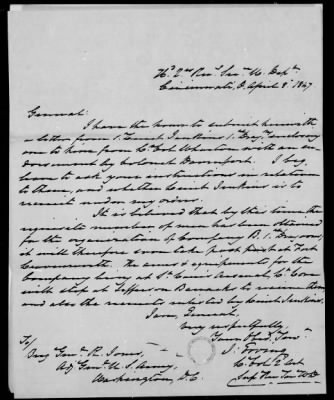 Hd. Qrs. Recg. Ser. W. Dept.
Cincinnati, O. April 8' 1847
General:
I have the honor to submit herewith
a letter from 1. Lieut Jenkins 1. Drags. enclosing
one to him from Lt. Col. Wharton with an en-
dorsement by Colonel Davenport. I beg
leave to ask your instructions in relation
to them, and whether Lieut Jenkins is to
recruit under my orders.
It is believed that by this time the
requisite number of men has been obtained
for the organization of company B. 1st Dragoons,
it will therefore soon take post first at Fort
Leavenworth. The arms & equipments for the
Company being at St. Louis Arsenal, Lt. Love
will stop at Jefferson Barracks to receive them
and also the recruits enlisted by Lieut Jenkins.
I am, General,
Very respectfully
Your Obed. Serv.
J. Erving
Lt. Col. 2 Art
Supt. Rec. Ser. W.D.
To/
Brig. Genl. R. Jones,
Adj. Genl. U. S. Army,
Washington, D.C.